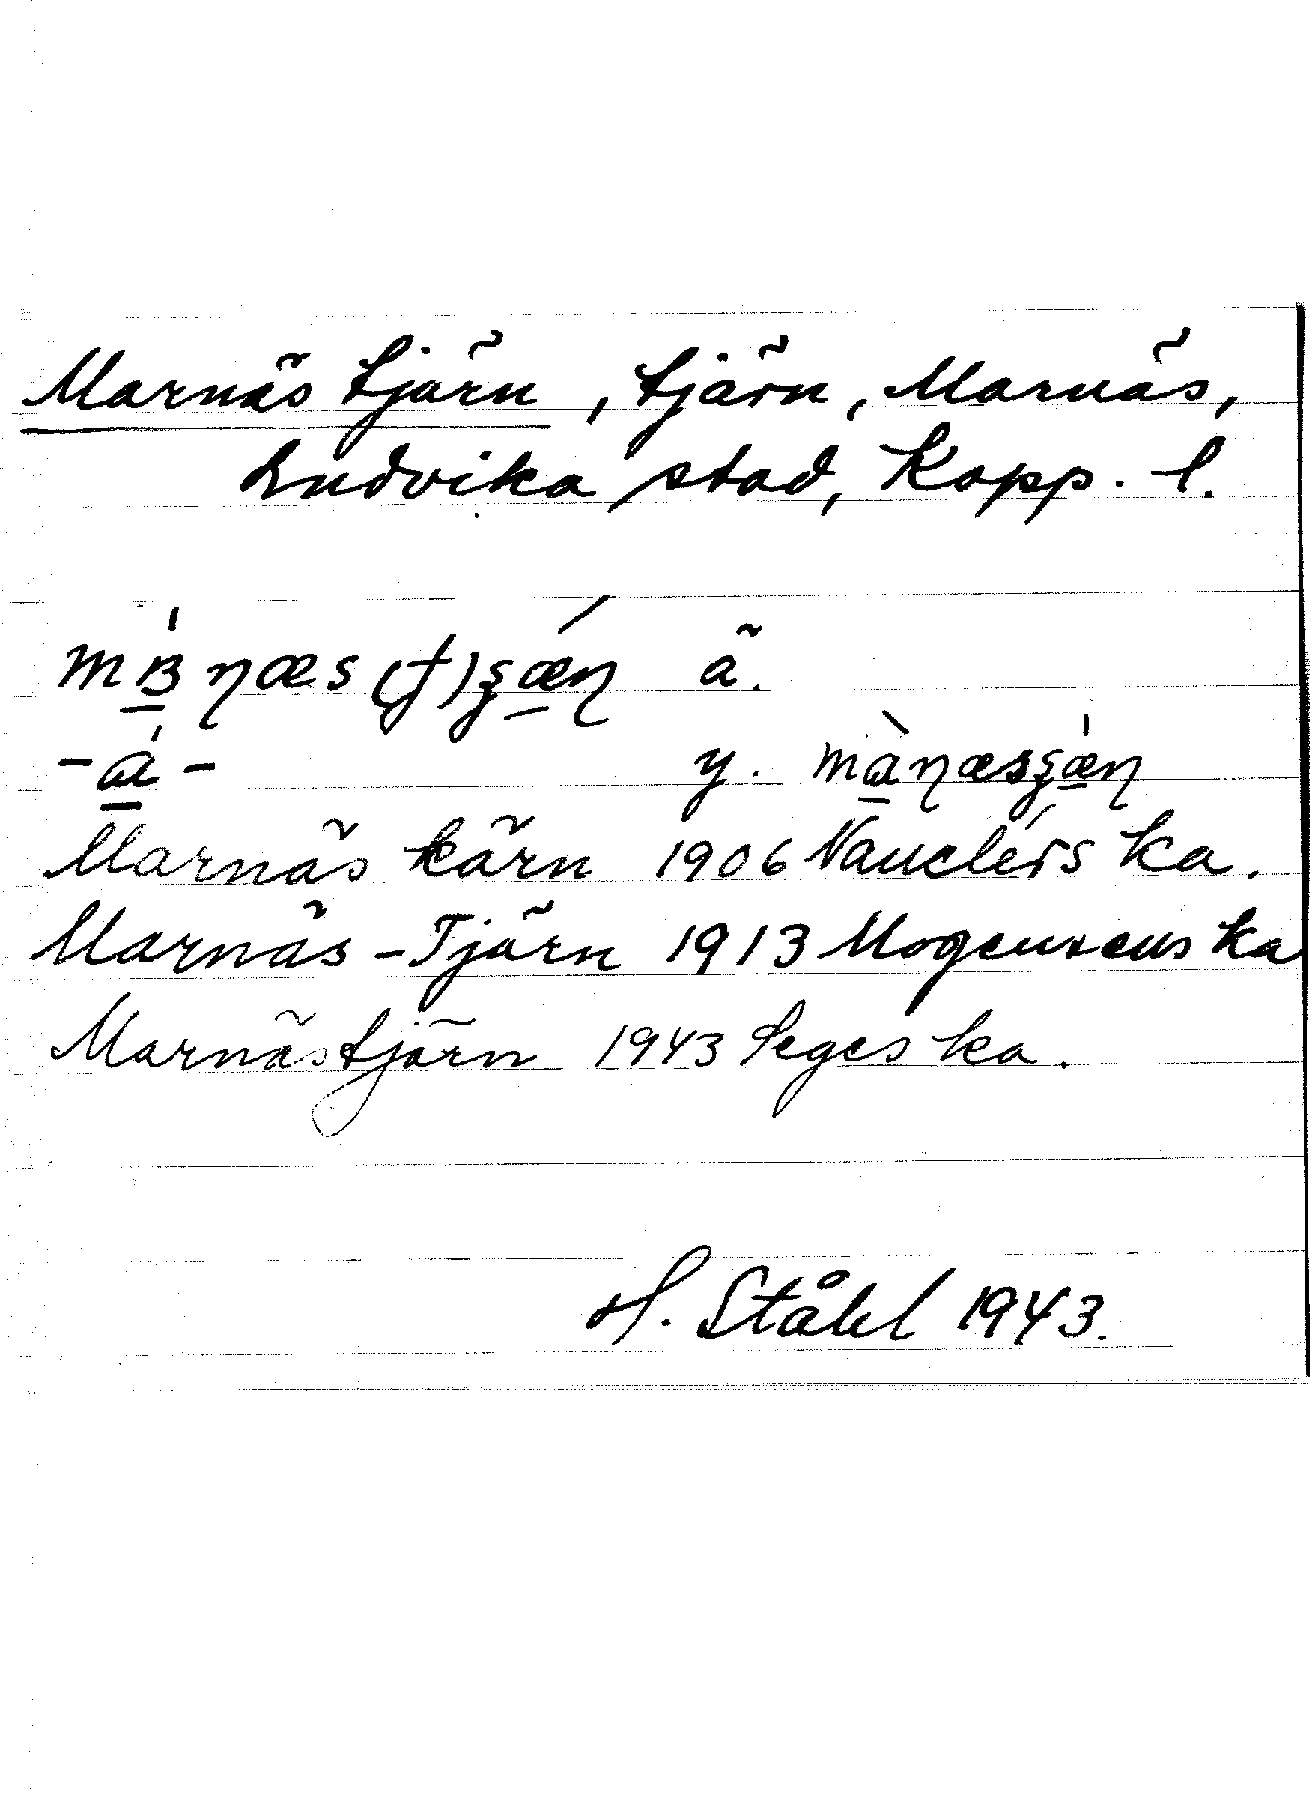 Marnäs tjärn, tjärn, Marnäs,
Ludvika stad, Kopp. l.
ä.
y.
Marnäs kärn 1906 Nauclérs ka.
Marnäs-Tjärn 1913 Mogensens ka
Marnästjärn 1943 Seges ka.
H. Ståhl 1943.